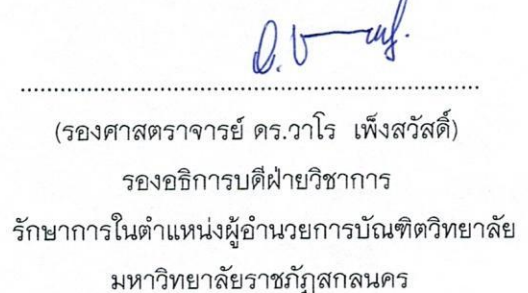 (รองศาสตราจารย์ ดร.วาโร เพ็งสวัสดิ์)
รองอธิการบดีฝ่ายวิชาการ
รักษาการในตำแหน่งผู้อำนวยการบัณฑิตวิทยาลัย
มหาวิทยาลัยราชภัฏสกลนคร